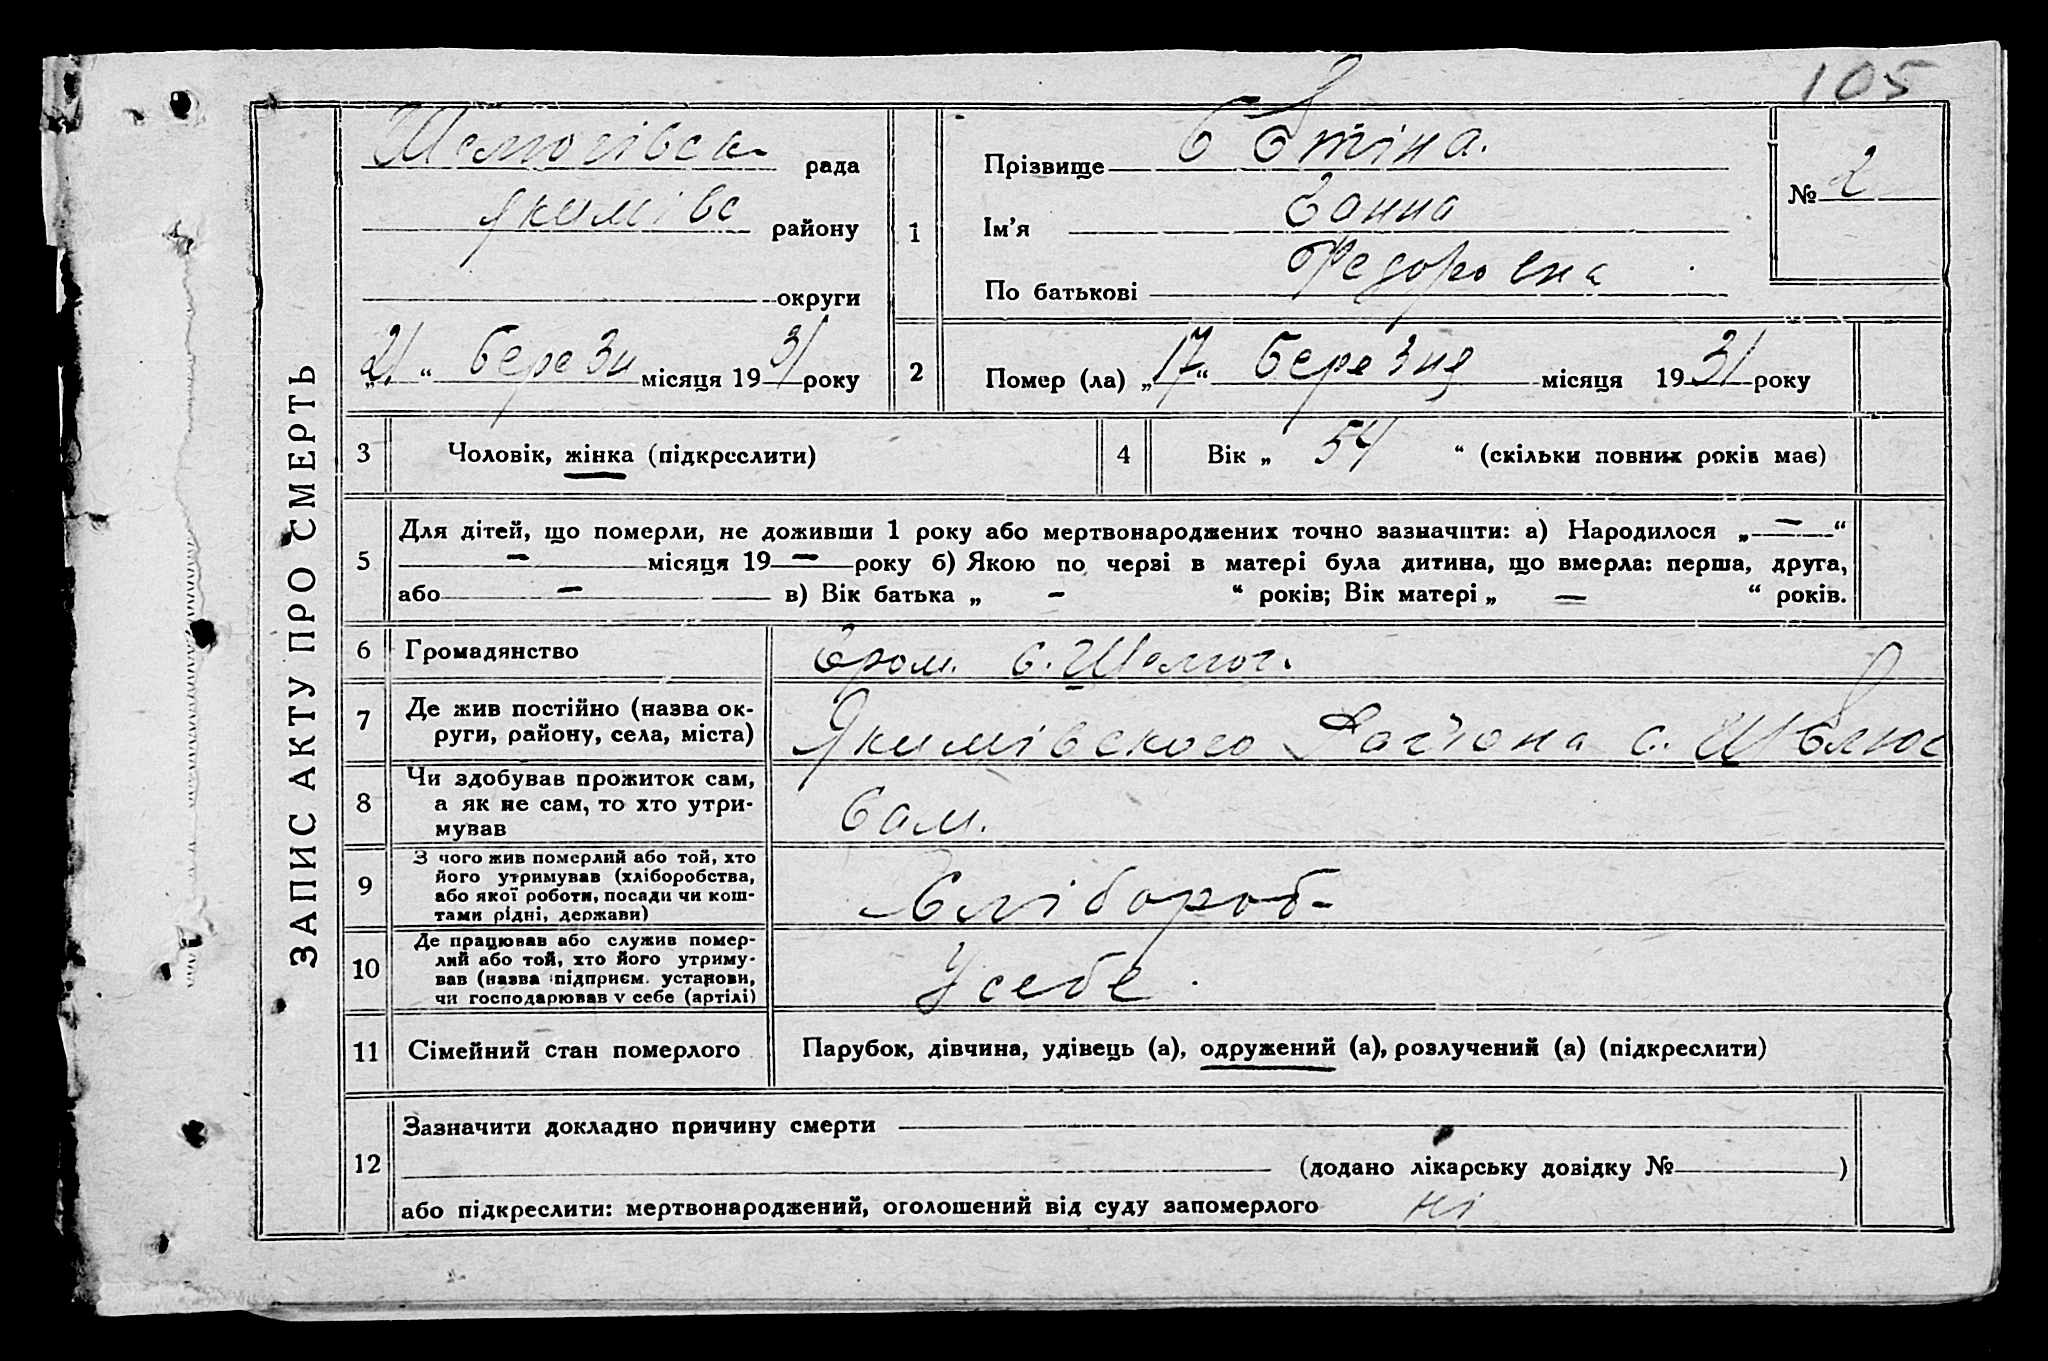 105
ЗАПИС АКТУ ПРО СМЕРТЬ
рада
Якимівс району
округи
„21“ березн місяця 1931 року
1
Прізвище
Ім'я Ганна
По батькові Федоровна
№ 2
2
Помер (ла) „17“ березня місяця 1931 року
3
Чоловік, жінка (підкреслити)
4
Вік „ 54 “ (скільки повних років має)
5
Для дітей, що померли, не доживши 1 року або мертвонароджених точно зазначити: а) Народилося „—“
— місяця 19 — року б) Якою по черзі в матері була дитина, що вмерла: перша, друга,
або — в) Вік батька „ - “ років; Вік матері „ — “ років.
6
Громадянство
Гром. с. Шелюг.
7
Де жив постійно (назва ок-
руги, району, села, міста)
Якимівского Району с. Шелюг
8
Чи здобував прожиток сам,
а як не сам, то хто утри-
мував
Сам.
9
З чого жив померлий або той, хто
його утримував (хліборобства,
або якої роботи, посади чи кош-
тами рідні, держави)
Хлібороб-
10
Де працював або служив помер-
лий або той, хто його утриму-
вав (назва підприєм. установи,
чи господарював у себе (артілі)
У себе.
11
Сімейний стан померлого
Парубок, дівчина, удівець (а), одружений (а), розлучений (а) (підкреслити)
12
Зазначити докладно причину смерти
(додано лікарську довідку № )
або підкреслити: мертвонароджений, оголошений від суду запомерлого ні